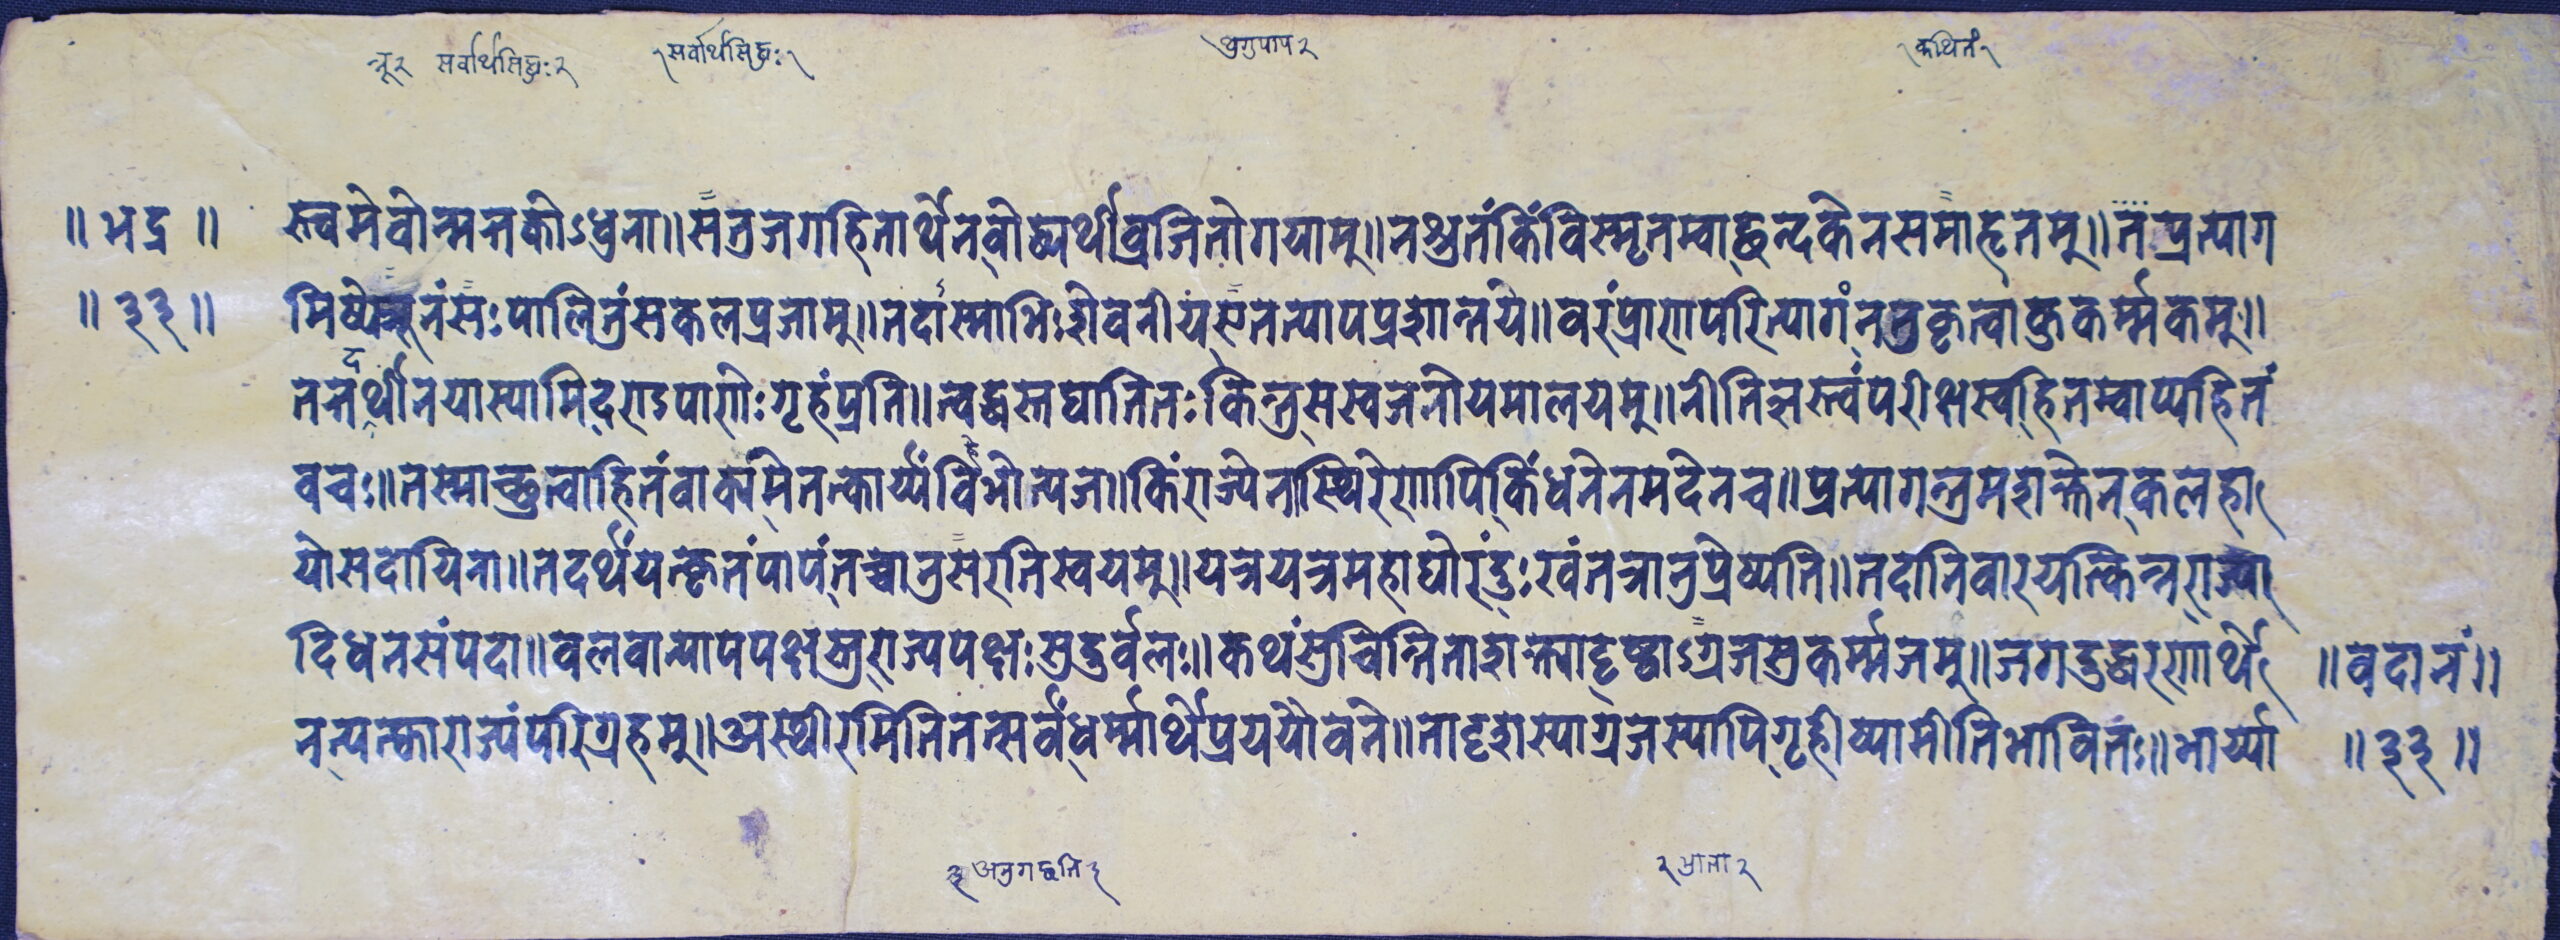 न्नू२ सर्वार्थसिद्धः२ २सर्वार्थसिद्धः२ थुगुपाप२ २कथितं२
॥ भद्र ॥ स्त्वमेवोन्मत्तकोऽधुना॥सतुजगद्धितार्थेनबोध्यर्थीव्रजितोगयाम्॥नश्रुतंकिंविस्मृतम्वाछन्दकेनसमाहृतम्॥नप्रत्याग
॥ ३३ ॥ मिष्येन्नूनंसःपालितुंसकलप्रजाम्॥तदास्माभिःशेवनीयंसतत्पापप्रशान्तये॥वरंप्राणपरित्यागंनतुकृत्वाकुकर्म्मकम्॥
तत्तदर्थीनयास्यामिदशऽपाशीःगृहंप्रति॥त्वद्धस्तघातितःकिन्तुसस्वजनीयमालयम्॥नीतिज्ञस्त्वंपरीक्षस्वहितम्वाप्यहितं
वचः॥तस्माच्छ्रुत्वाहितंवाक्यंमेतत्कार्य्यंविभोत्यज॥किंराज्येनास्थिरेणापिकिंधनेनमदेनच॥प्रत्यागन्तुमशक्तेनकलहा
योसदायिना॥तदर्थंयत्कृतंपापंतच्चानुसरतिस्वयम्॥यत्रयत्रमहाघोरंदुःखंतत्रानुप्रेष्यति॥तदानिवारयत्किन्नराज्या
दिधनसंपदा॥बलवान्पापपक्षस्तुराज्यपक्षःसुदुर्बलः॥कथंसुचिन्तिताशक्त्यादृष्ट्वाऽग्रजसुकर्म्मजम्॥जगदुद्धरणार्थे ॥वदानं॥
नत्यत्काराज्यंपरिग्रहम्॥अस्थीरमितितत्सर्वंधर्म्मार्थेप्रययौवने॥तादृशस्याग्रजस्यापिगृहीष्यामीतिभावितः॥भार्य्या ॥ ३३ ॥
अनुगछति२ २भ्राता२